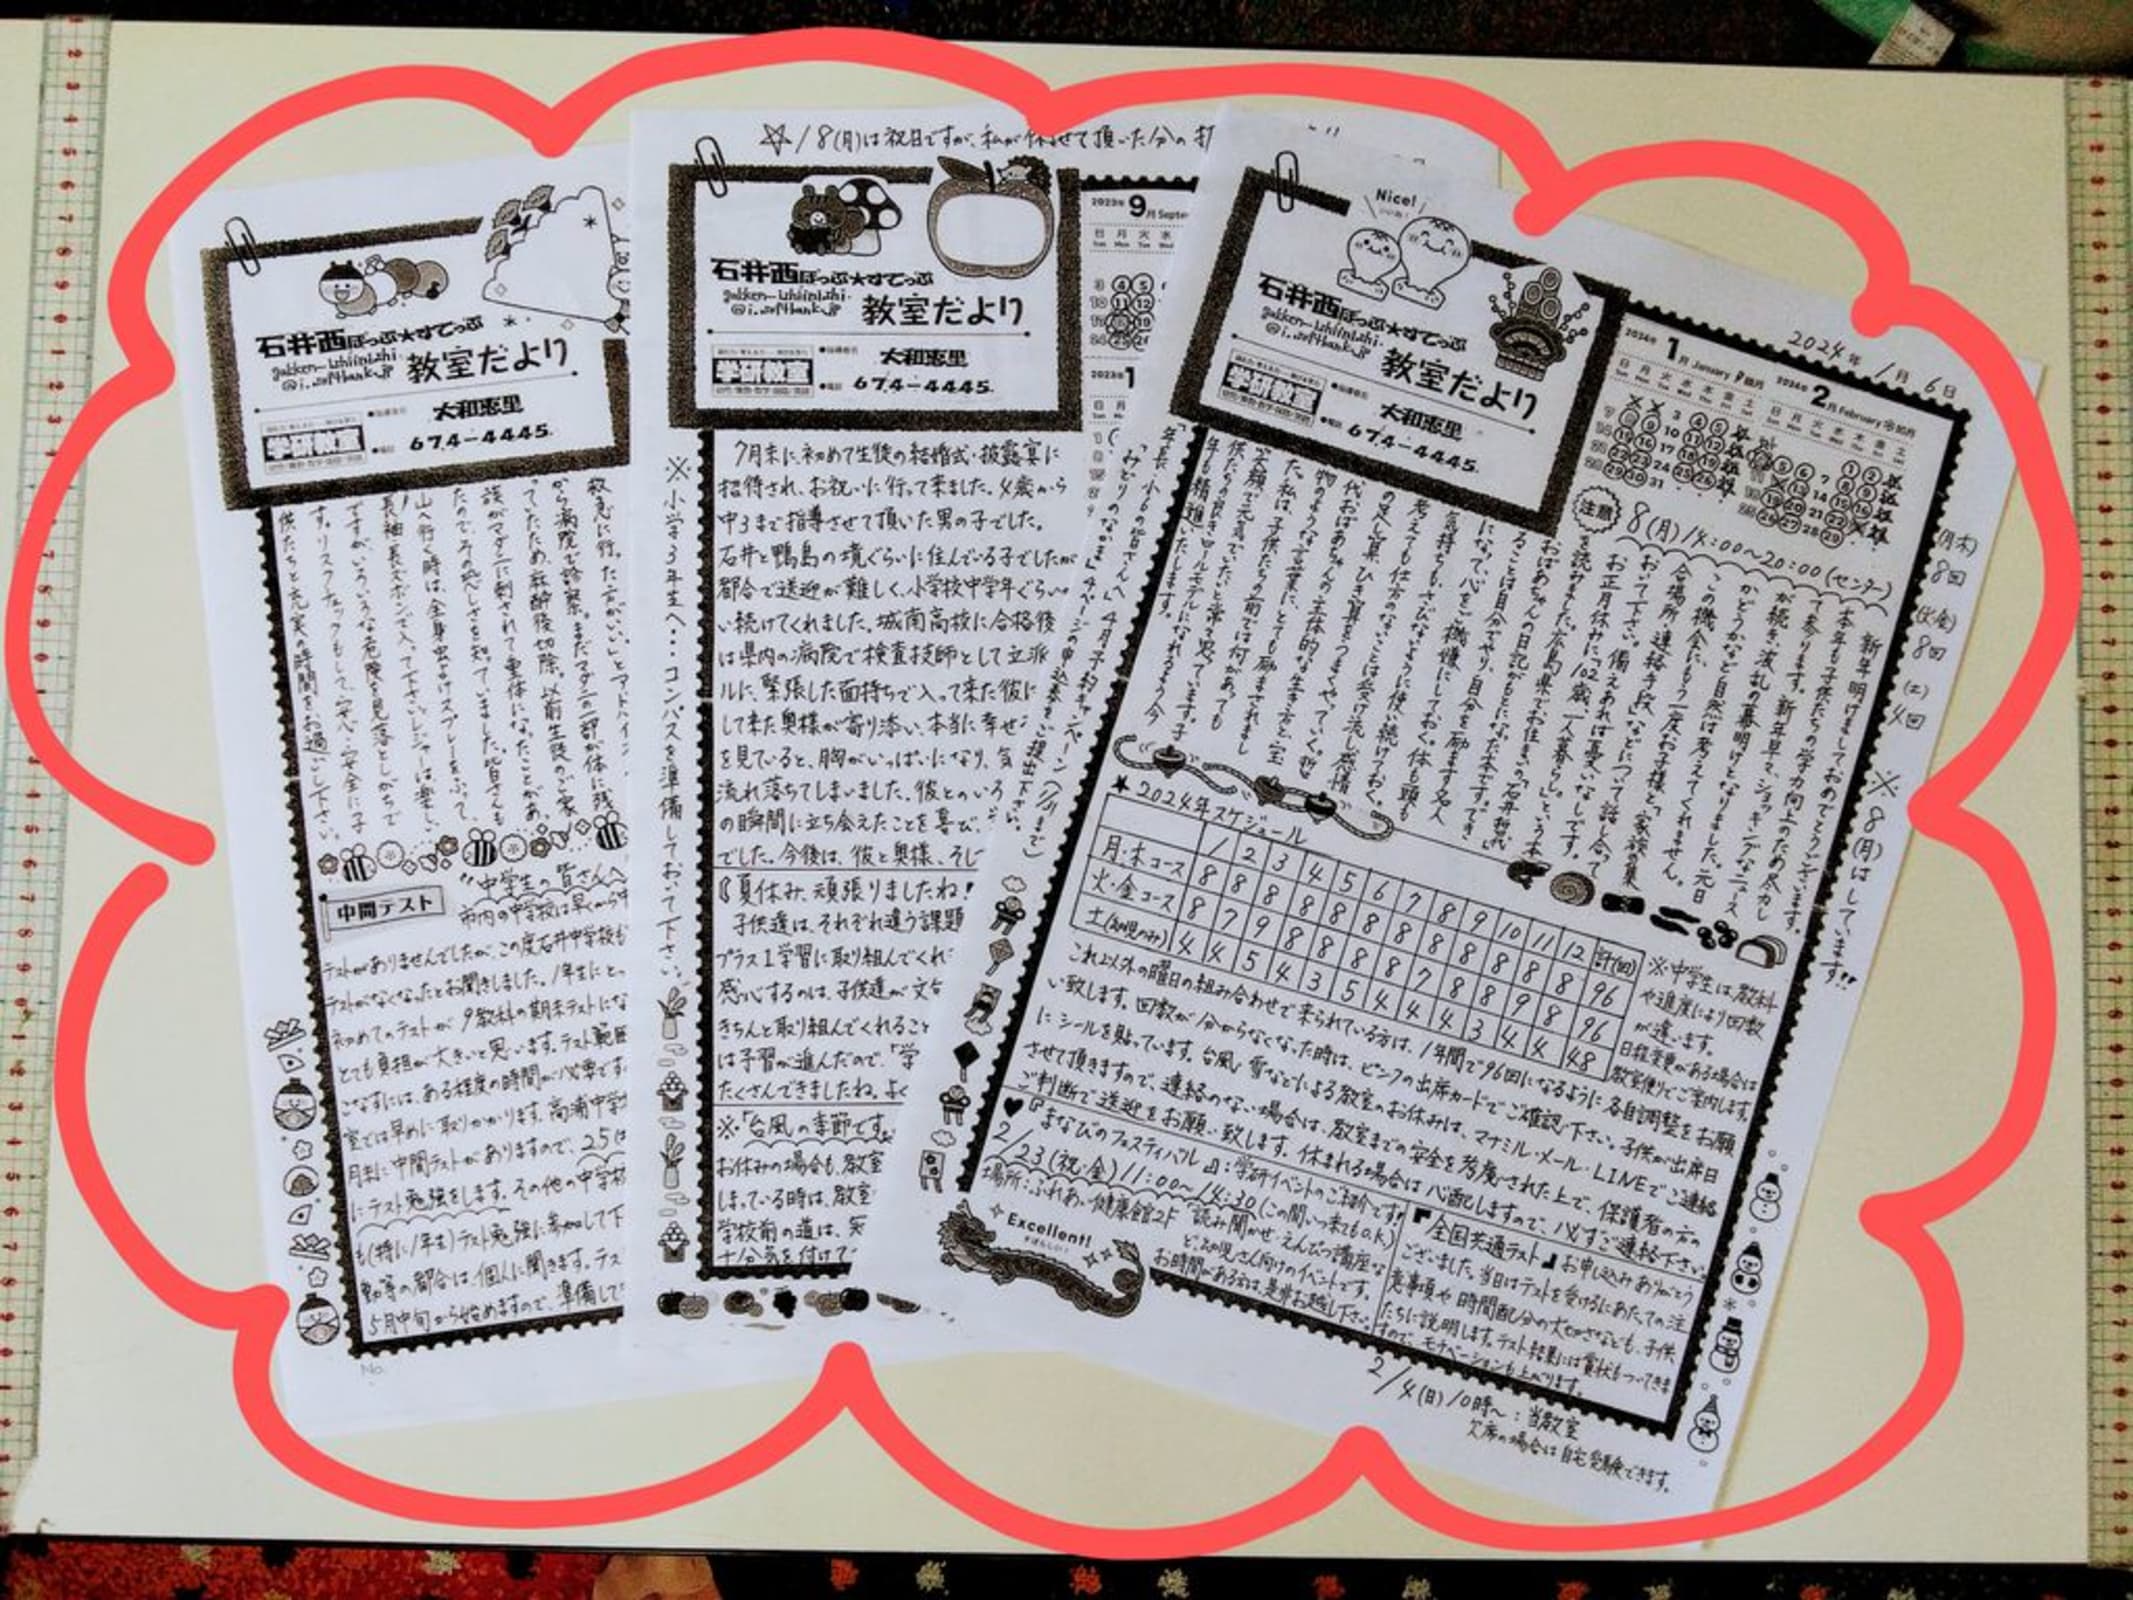 石井西ぽっぷ★すてっぷ
gakken-ishiinishi.
@i.softbank.jp
教室だより
学研教室
大和恵里
674-4445
救急に行った方がいい」とアドバイス
から病院で診察。まだマダニの一部が体に残
っていたため、麻酔後切除。以前生徒のご家
族がマダニに刺されて重体になったことがあ
たのでその恐しさを知っていました。皆さんも
山へ行く時は、全身虫よけスプレーをふって、
長袖長ズボンで入って下さい。レジャーは楽しい
ですが、いろいろな危険を見落としがちで
す。リスクチェックもして、安心・安全に子
供たちと充実の時間をお過ごし下さい。
中間テスト
"中学生の皆さんへ
市内の中学校は早くから中
テストがありませんでしたが、この度石井中学校も
テストがなくなったとお聞きしました。1年生にとっ
初めてのテストが9教科の期末テストにな
とても負担が大きいと思います。テスト範囲
こなすには、ある程度の時間が必要です。
室では早めに取りかかります。高浦中学
月末に中間テストがありますので、25は
にテスト勉強をします。その他の中学校
も(特に1年生)テスト勉強に参加して下
動等の都合は、個人に聞きます。テス
5月中旬から始めますので、準備して
No.
☆1/8(月)は祝日ですが、私が休ませて頂いた分の
石井西ぽっぷ★すてっぷ
gakken-ishiinishi.
@i.softbank.jp
教室だより
学研教室
大和恵里
674-4445
2023年 9月 Septe
日 月 火 水
Sun Mon Tue Wed
※小学3年生へ…コンパスを準備しておいて下さい。
7月末に、初めて生徒の結婚式・披露宴に
招待され、お祝いに行って来ました。4歳から
中3まで指導させて頂いた男の子でした。
石井と鴨島の境ぐらいに住んでいる子でしたが
都合で送迎が難しく、小学校中学年ぐらい
い続けてくれました。城南高校に合格後
は県内の病院で検査技師として立派
ルに、緊張した面持ちで入って来た彼に
して来た奥様が寄り添い、本当に幸せな
を見ていると、胸がいっぱいになり、気
流れ落ちてしまいました。彼とのいろ
の瞬間に立ち会えたことを喜び、
でした。今後は、彼と奥様、そし
『夏休み、頑張りましたね!
子供達は、それぞれ違う課題
プラス1学習に取り組んでくれ
感心するのは、子供達が文句
きちんと取り組んでくれること
は予習が進んだので、「学
たくさんできましたね。よく
※「台風の季節です。
お休みの場合も、教室
しまっている時は、教室
学校前の道は、
十分気を付けて
石井西ぽっぷ★すてっぷ
gakken-ishiinishi.
@i.softbank.jp
教室だより
学研教室
大和恵里
674-4445
Nice!
いいね!
2024年1月6日
2024年 1月 January 睦月
2024年 2月 February 如月
日 月 火 水 木 金 土
日 月 火 水 木 金 土
(月木)
8回
(火金)
8回
(土)
4回
※8(月)はしています!!
注意
8(月)14:00〜20:00(センター)
新年明けましておめでとうございます。
本年も子供たちの学力向上のため尽力し
て参ります。新年早々、ショッキングなニュース
が続き、波乱の幕明けとなりました。元日
かどうかなど自然は考えてくれません。
この機会にもう一度お子様と、「家族の集
合場所、連絡手段」などについて話し合って
おいて下さい。備えあれば憂いなしです。
お正月休みに「102歳、一人暮らし。」という本
を読みました。広島県でお住まいの「石井哲代
おばあちゃんの日記がもとになった本です。「でき
ることは自分でやり、自分を励ます名人
になって、心もご機嫌にしておく。体も頭も
気持ちも、さびないように使い続けておく。
考えても仕方のないことは受け流し、感情
の足し算、ひき算をうまくやっていく。」哲
代おばあちゃんの主体的な生き方と、宝
物のような言葉に、とても励まされまし
た。私は、子供たちの前では何があっても
笑顔で元気でいたいと常々思っています。子
供たちの良きロールモデルになれるよう今
年も精進いたします。
「年長・小6の皆さんへ 4月予約キャンペーン(1/11まで)
「みどりのなかま」4ページの申込書をご提出下さい。
★2024年スケジュール
1 2 3 4 5 6 7 8 9 10 11 12 計(回)
月・木コース 8 8 8 8 8 8 8 8 8 8 8 8 96
火・金コース 8 7 9 8 8 8 8 7 8 8 9 8 96
土(幼児のみ) 4 4 5 4 3 5 4 4 4 3 4 4 48
※中学生は、教科
や進度により回数
が違います。
日程変更がある場合は
教室便りでご案内します。
これ以外の曜日の組み合わせで来られている方は、1年間で96回になるように各自調整をお願
い致します。回数が分からなくなった時は、ピンクの出席カードでご確認下さい。子供が出席日
にシールを貼っています。台風、雪などによる教室のお休みは、マナミル・メール・LINEでご連絡
させて頂きますので、連絡のない場合は、教室までの安全を考慮された上で、保護者の方の
ご判断で送迎をお願い致します。休まれる場合は心配しますので、必ずご連絡下さい。
♥『まなびのフェスティバル』:学研イベントのご紹介です!
2/23(祝・金)11:00〜14:30(この間いつ来てもo.k.)
場所:ふれあい健康館2F 読み聞かせ・えんぴつ講座な
ど、幼児さん向けのイベントです。
お時間がある方は、是非お越し下さい。
『全国共通テスト』お申し込みありがとう
ございました。当日はテストを受けるにあたっての注
意事項や時間配分の大切さなども、子供
たちに説明します。テスト結果には賞状もついてきま
すので、モチベーションも上がります。
Excellent!
すばらしい!
2/4(日)10時〜:当教室
欠席の場合は自宅受験できます。